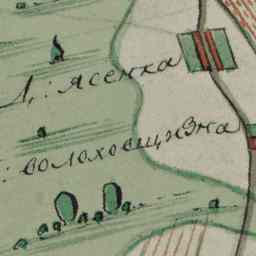 Д: ясенка
: волоховщизна